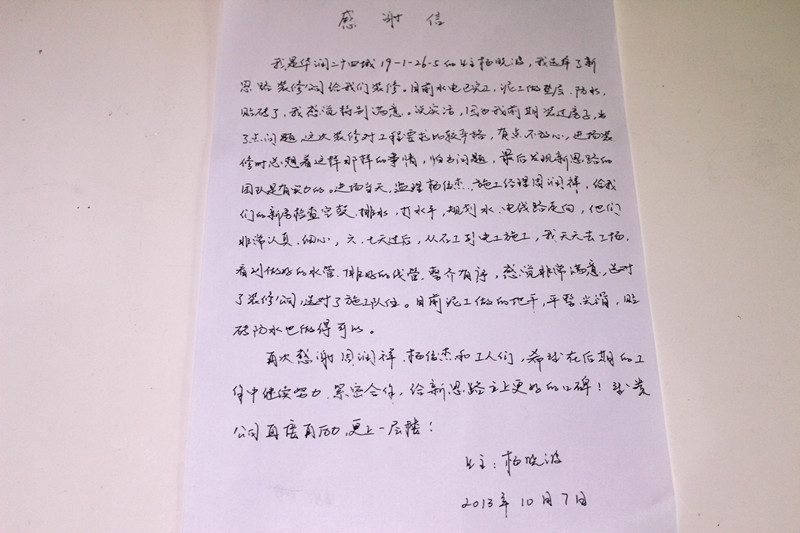 感谢信
我是华润二十四城19-1-26-5的业主杨晓波，我选择了新
思路装修公司给我们装修。目前水电已完工，泥工做垫层、防水，
贴砖了，我感觉特别满意。说实话，因为我前期装过房子，出
了点问题，这次装修对工程要求比较严格，有点不放心，进场装
修时总想着这样那样的事情，怕出问题，最后发现新思路的
团队是有实力的。进场当天，监理杨伍杰、施工经理周润祥，给我
们的新房检查空鼓、排水，打水平，规划水、电线路走向，他们
非常认真、细心，六、七天过后，从水工到电工施工，我天天去工场，
看到做好的水管、排好的线管，整齐有序，感觉非常满意，选对
了装修公司，选对了施工队伍。目前泥工做的地平，平整、光滑，贴
砖防水也做得可以。
再次感谢周润祥、杨伍杰和工人们，希望在后期的工
作中继续努力、紧密合作，给新思路主上更好的口碑！祝贵
公司再接再厉，更上一层楼！
业主：杨晓波
2013年10月7日